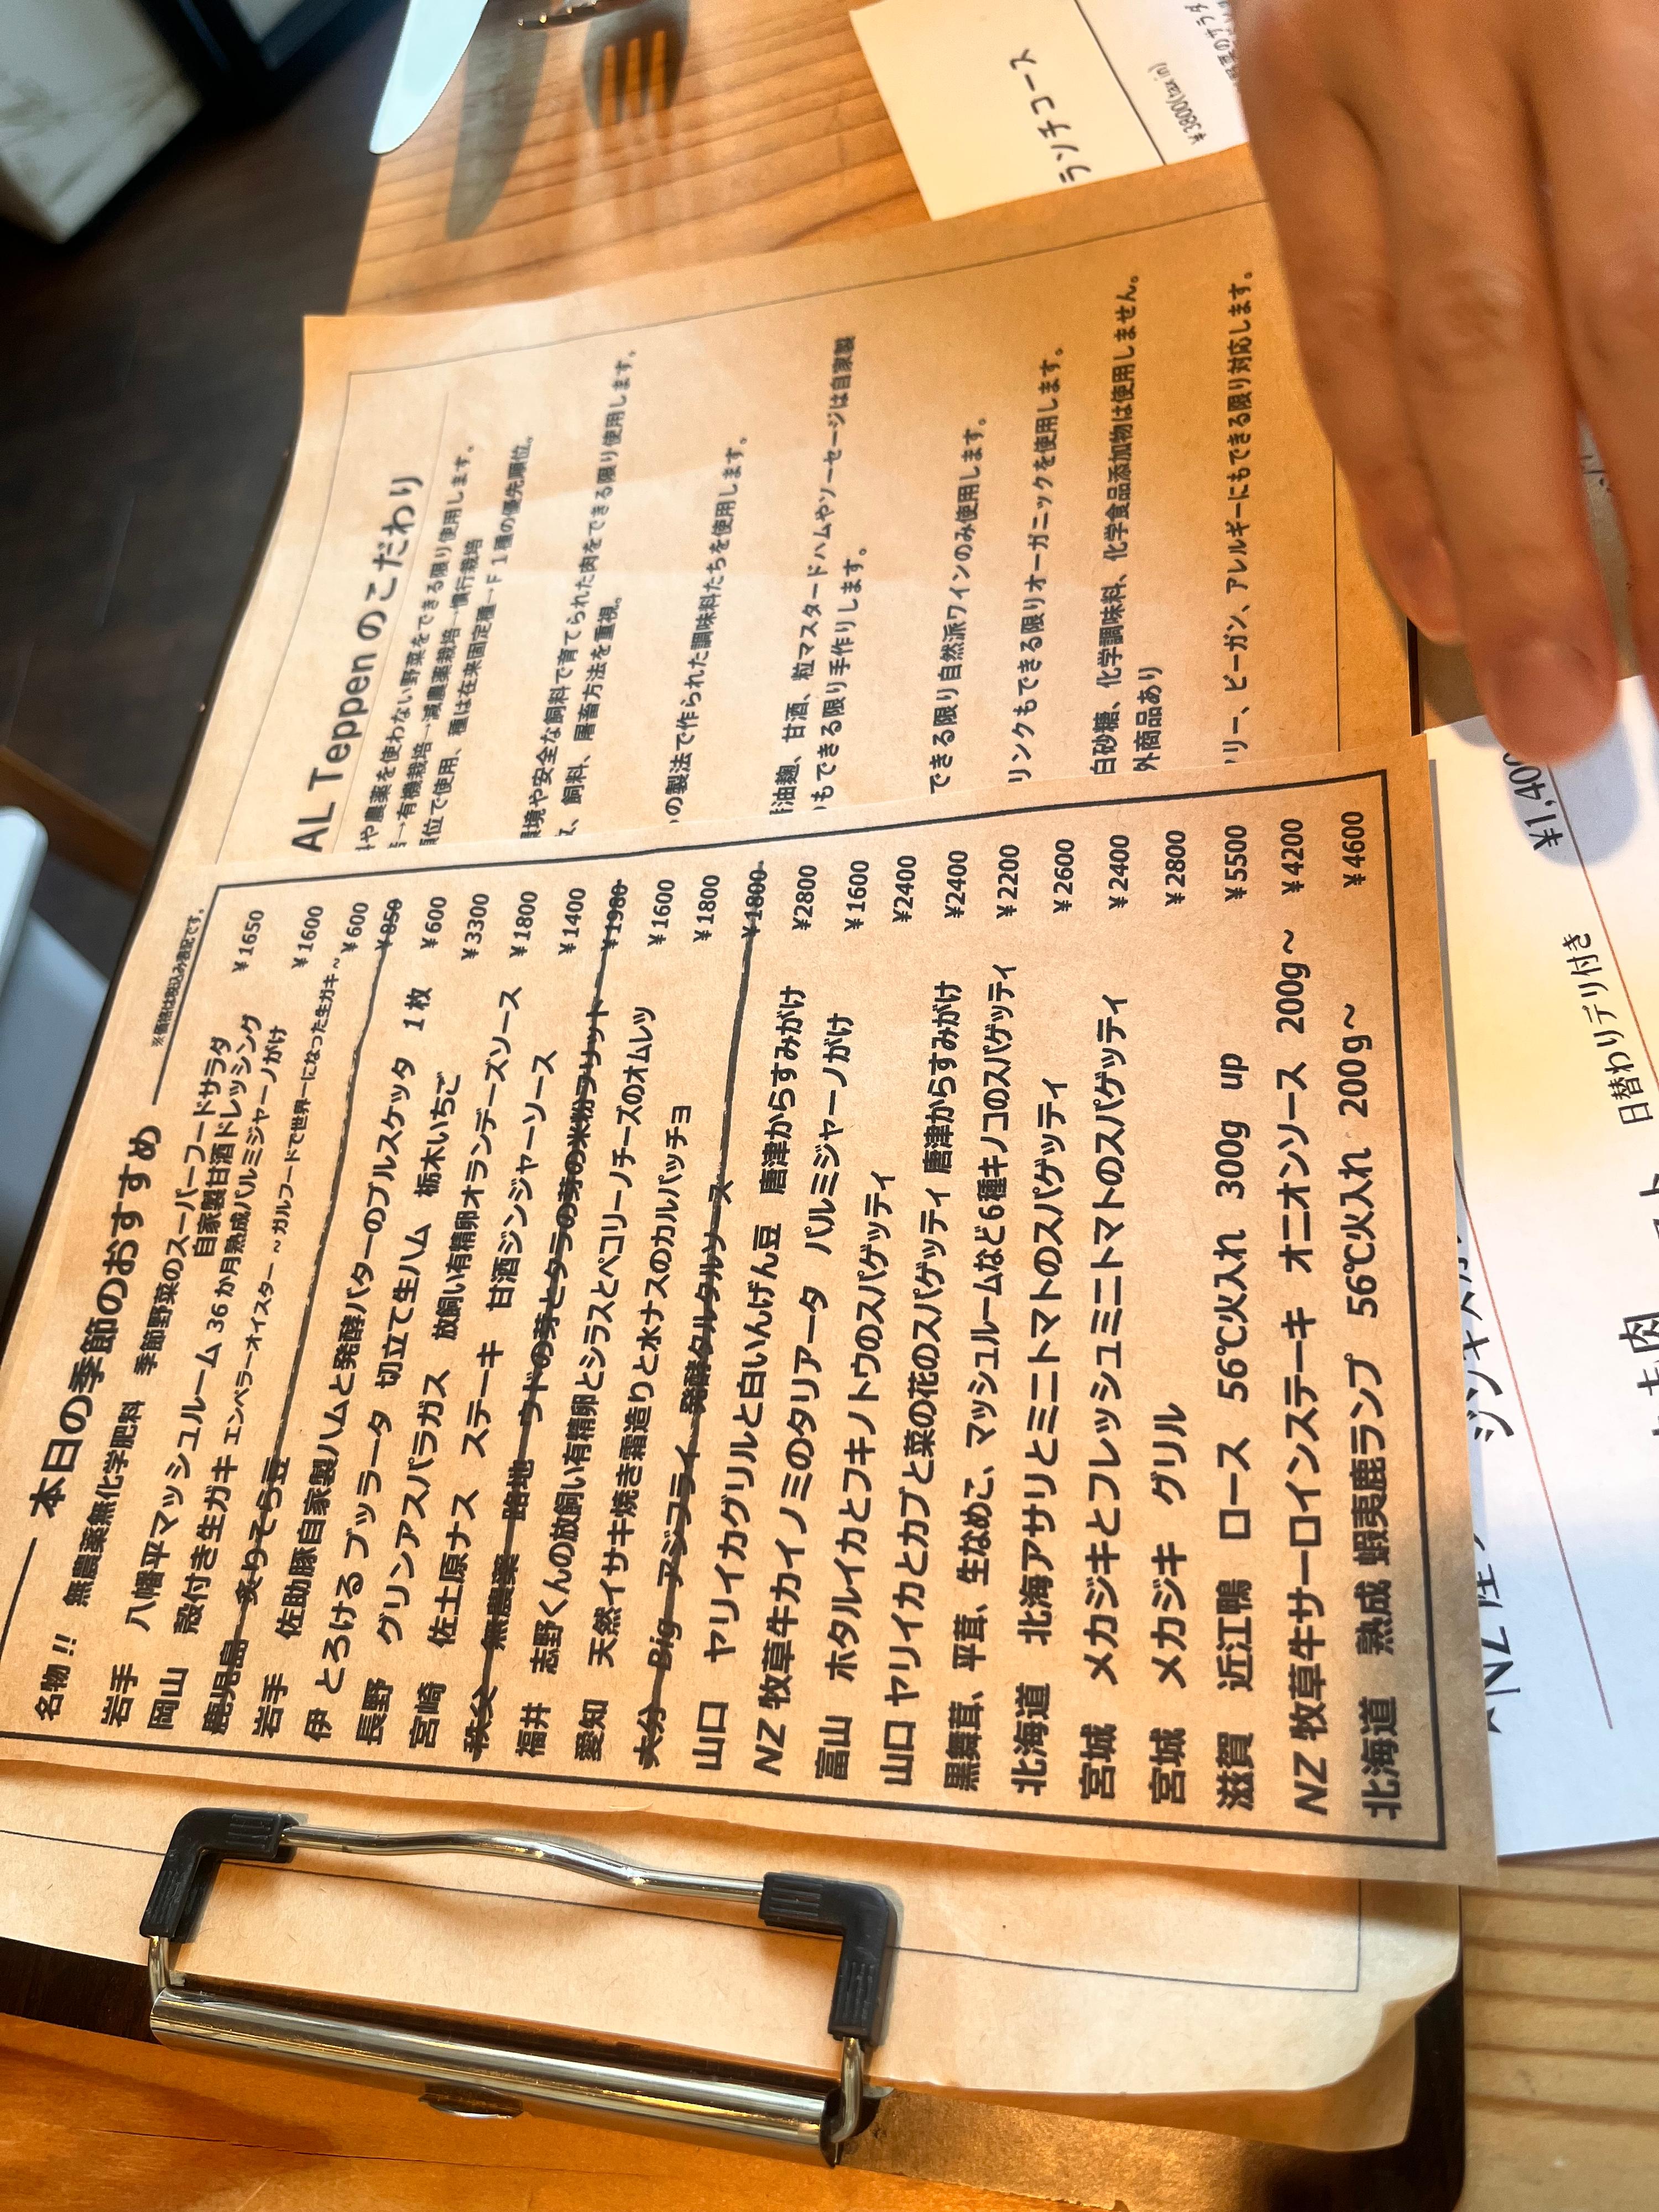 本日の季節のおすすめ
※価格は税込み表記です。
名物!! 無農薬無化学肥料 季節野菜のスーパーフードサラダ
自家製甘酒ドレッシング ¥1650
岩手 八幡平マッシュルーム 36か月熟成パルミジャーノがけ ¥1600
岡山 殻付き生ガキ エンペラーオイスター ~ガルフードで世界一になった生ガキ~ ¥600
鹿児島 炙りそら豆 ¥850
岩手 佐助豚自家製ハムと発酵バターのブルスケッタ 1枚 ¥600
伊 とろけるブッラータ 切立て生ハム 栃木いちご ¥3300
長野 グリンアスパラガス 放飼い有精卵オランデーズソース ¥1800
宮崎 佐土原ナス ステーキ 甘酒ジンジャーソース ¥1400
秩父 無農薬 路地 ウドの芽とタラの芽の米粉フリット ¥1980
福井 志野くんの放飼い有精卵とシラスとペコリーノチーズのオムレツ ¥1600
愛知 天然イサキ焼き霜造りと水ナスのカルパッチョ ¥1800
大分 Big アジフライ 発酵タルタルソース ¥1800
山口 ヤリイカグリルと白いんげん豆 唐津からすみがけ ¥2800
NZ 牧草牛カイノミのタリアータ パルミジャーノがけ ¥1600
富山 ホタルイカとフキノトウのスパゲッティ ¥2400
山口 ヤリイカとカブと菜の花のスパゲッティ 唐津からすみがけ ¥2400
黒舞茸、平茸、生なめこ、マッシュルームなど6種キノコのスパゲッティ ¥2200
北海道 北海アサリとミニトマトのスパゲッティ ¥2600
宮城 メカジキとフレッシュミニトマトのスパゲッティ ¥2400
宮城 メカジキ グリル ¥2800
滋賀 近江鴨 ロース 56℃火入れ 300g up ¥5500
NZ 牧草牛サーロインステーキ オニオンソース 200g~ ¥4200
北海道 熟成 蝦夷鹿ランプ 56℃火入れ 200g~ ¥4600
AL Teppen のこだわり
や農薬を使わない野菜をできる限り使用します。
→有機栽培→減農薬栽培→慣行栽培
順位で使用、種は在来固定種→F1種の優先順位。
環境や安全な飼料で育てられた肉をできる限り使用します。
、飼料、屠畜方法を重視。
の製法で作られた調味料たちを使用します。
油麹、甘酒、粒マスタードハムやソーセージは自家製
もできる限り手作りします。
できる限り自然派ワインのみ使用します。
リンクもできる限りオーガニックを使用します。
白砂糖、化学調味料、化学食品添加物は使用しません。
外商品あり
リー、ビーガン、アレルギーにもできる限り対応します。
ランチコース
¥3800(tax in)
¥1,400
日替わりデリ付き